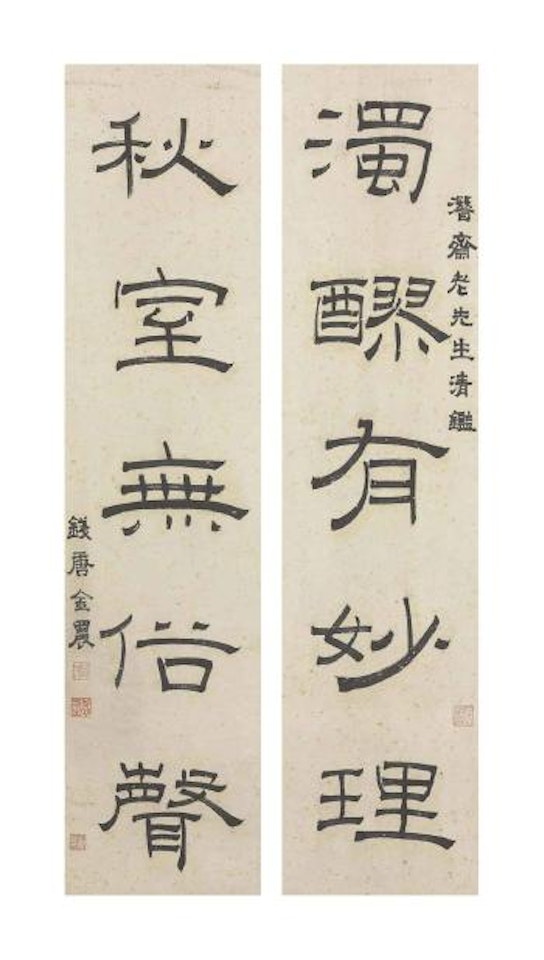 濁醪有妙理
潛齋老先生清鑑
秋室無俗聲
錢唐金農